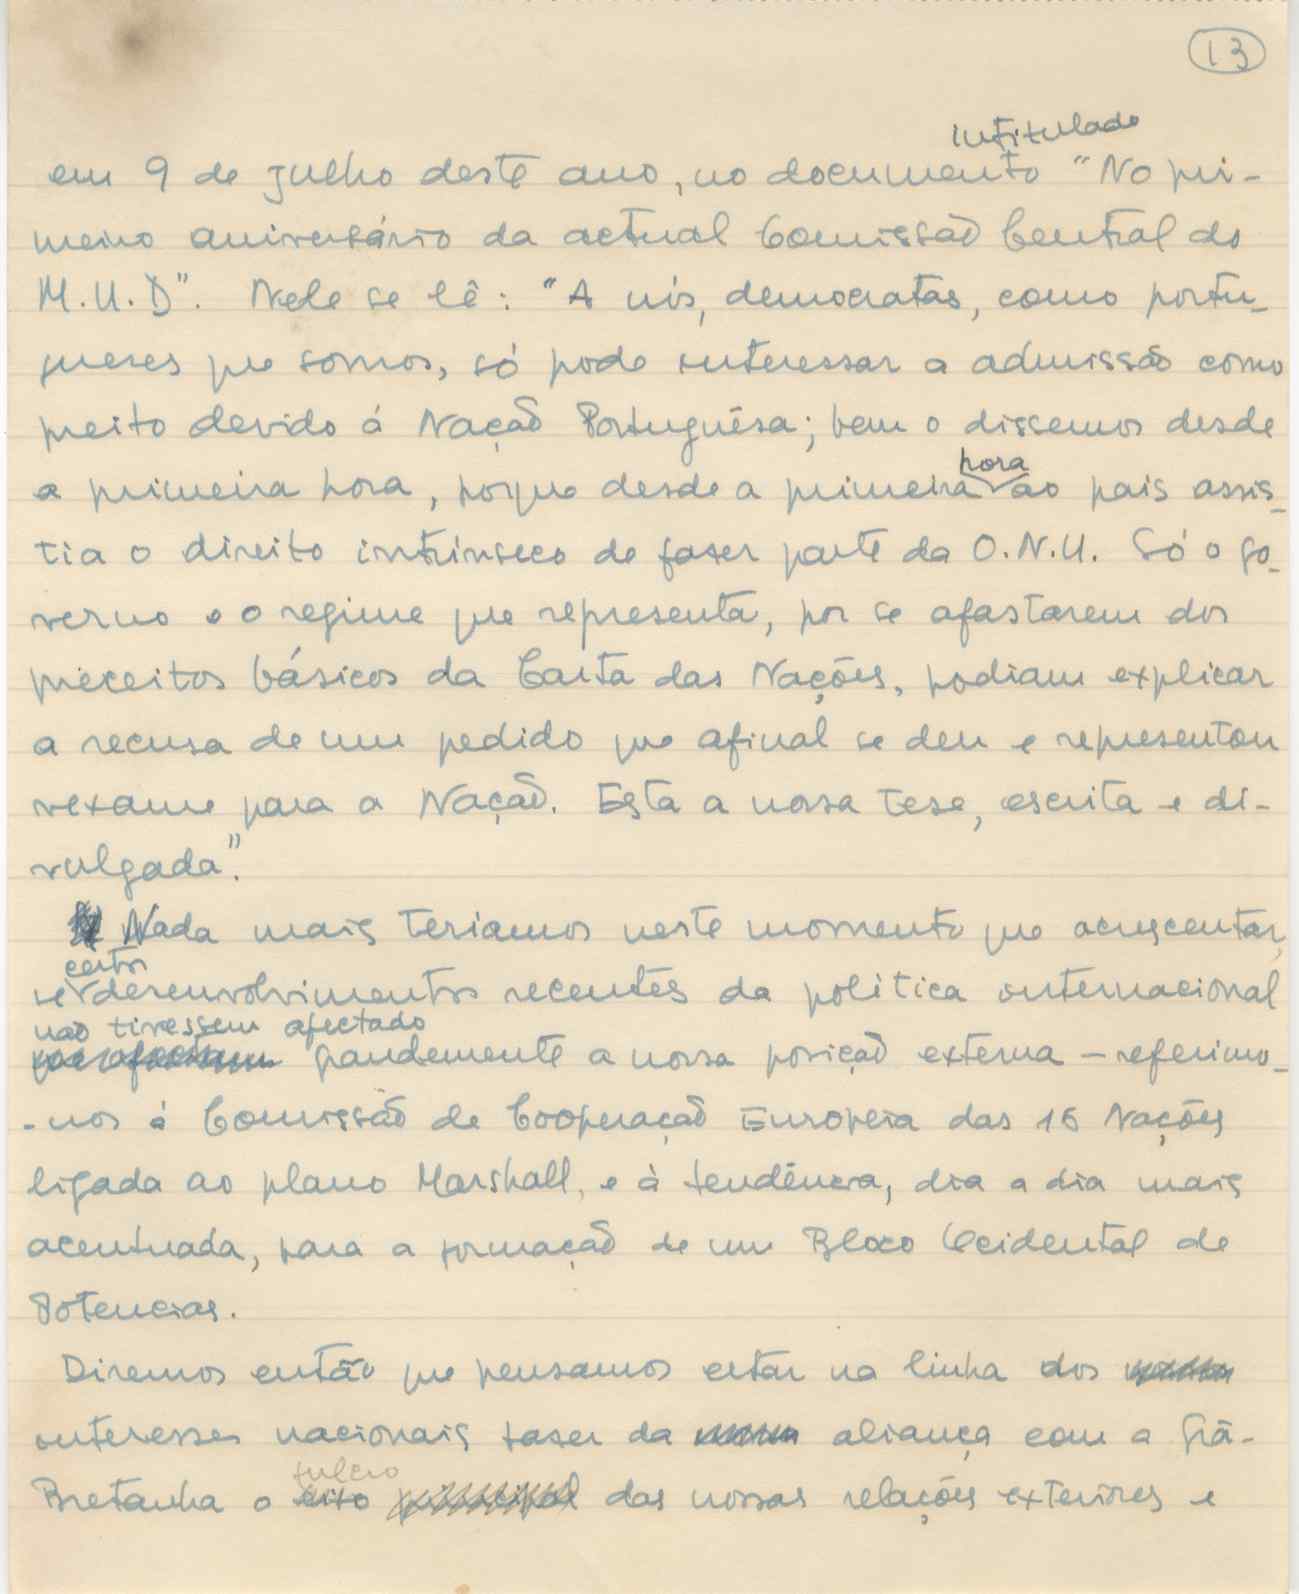 13
intitulado
em 9 de julho deste ano, no documento "No pri-
meiro aniversário da actual Comissão Central do
M.U.D". Nele se lê: "A nós, democratas, como portu-
gueses que somos, só pode interessar a admissão como
preito devido á Nação Portuguêsa; bem o dissemos desde
hora
a primeira hora, porque desde a primeira ao pais assis-
tia o direito intrinseco de fazer parte da O.N.U. Só o go-
verno e o regime que representa, por se afastarem dos
preceitos básicos da Carta das Nações, podiam explicar
a recusa de um pedido que afinal se deu e representou
vexame para a Nação. Esta a nossa tese, escrita e di-
vulgada".
Nada mais teriamos neste momento que acrescentar,
certos
se desenvolvimentos recentes da politica internacional
não tivessem afectado
que afectam grandemente a nossa posição externa – referimo-
-nos á Comissão de Cooperação Europeia das 16 Nações
ligada ao plano Marshall, e à tendência, dia a dia mais
acentuada, para a formação de um Bloco Ocidental de
Potencias.
Diremos então que pensamos estar na linha dos
interesses nacionais fazer da aliança com a Grã-
fulcro
Bretanha o eixo principal das nossas relações exteriores e